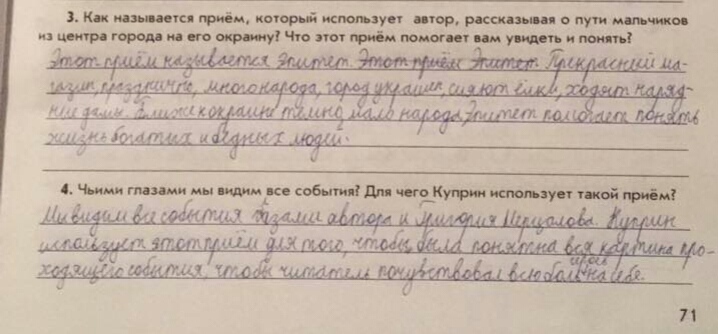 3. Как называется приём, который использует автор, рассказывая о пути мальчиков
из центра города на его окраину? Что этот приём помогает вам увидеть и понять?
Этот приём называется эпитет. Этот приём эпитет. Прекрасный ма-
газин, празднично, многонарода, город украшен, сияют ёлки, ходят наряд-
ные дамы. Ближе к окраине темно, мало народа. Эпитет помогает понять
жизнь богатых и бедных людей.
4. Чьими глазами мы видим все события? Для чего Куприн использует такой приём?
Мы видим все события глазами автора и Григория Мерцалова. Куприн
использует этот приём для того, чтобы была понятна вся картина про-
ходящего события, чтобы читатель почувствовал всю боль героя на себе.
71